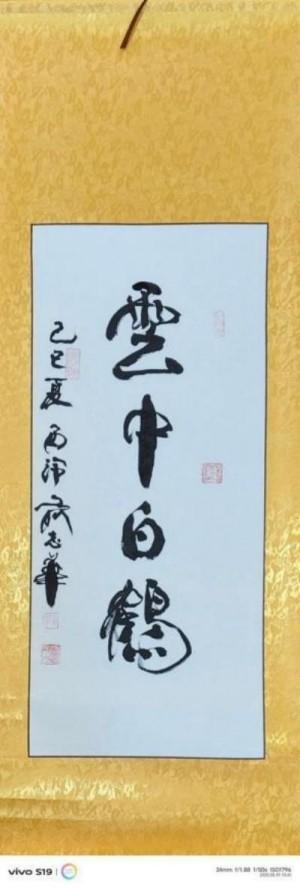 雲中白鶴
己巳夏
志華
vivo S19
24mm f/1.88 1/50s ISO1796